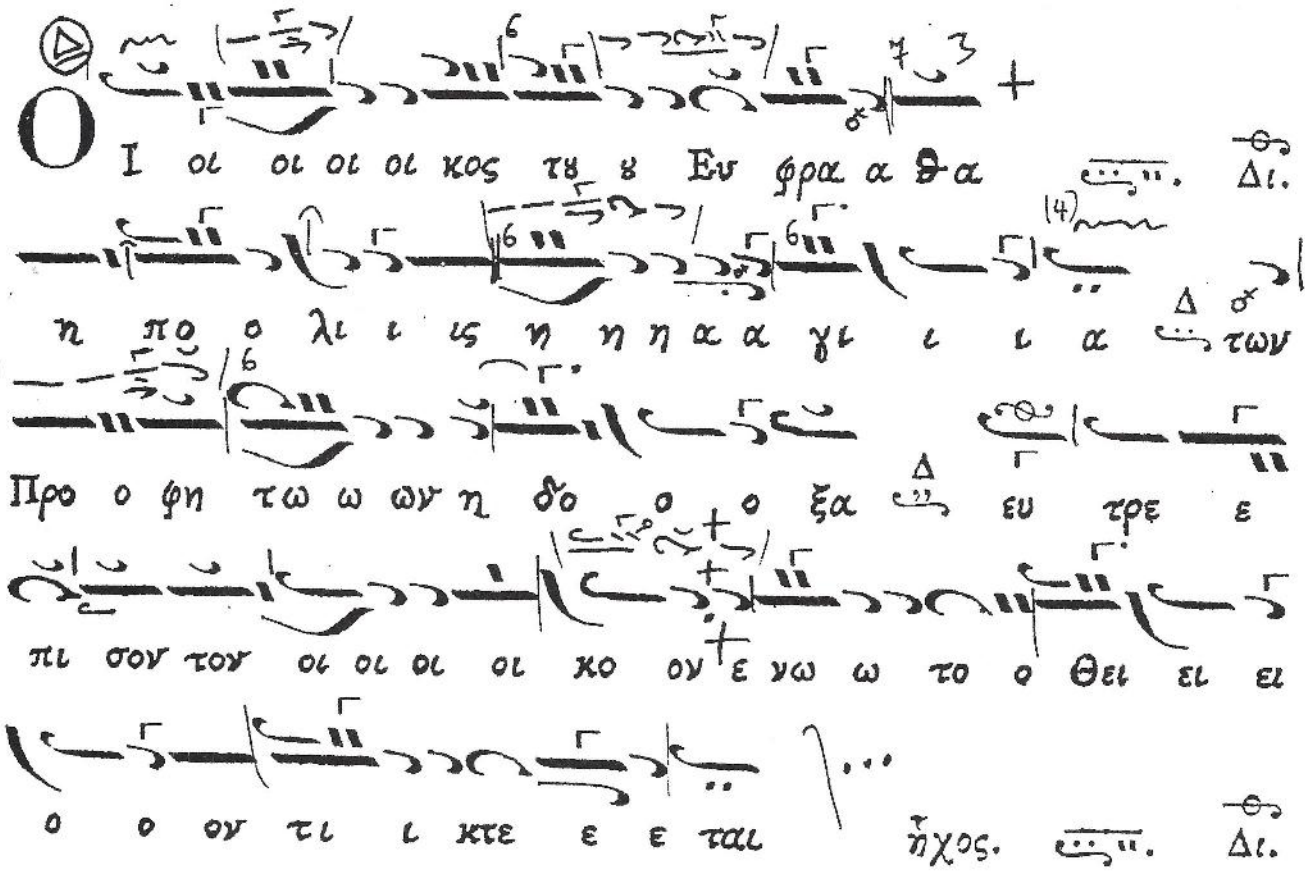 Ο Ι οι οι οι οι κος τȣ ȣ Ευ φρα α θα Δι.
η πο ο λι ι ις η η η α α γι ι ι α Δ των
Προ ο φη τω ω ων η δο ο ο ξα Δ ευ τρε ε
πι σον τον οι οι οι οι κο ον ε νω ω το ο Θει ει ει
ο ο ον τι ι κτε ε ε ται ... ἦχος. Δι.